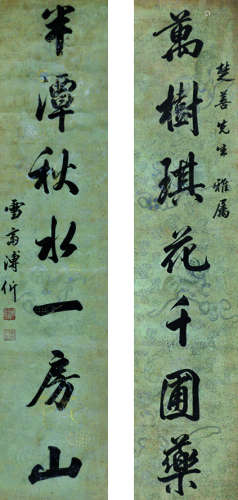 楚善先生雅属
萬樹琪花千圃藥
半潭秋水一房山
雪斋溥伒